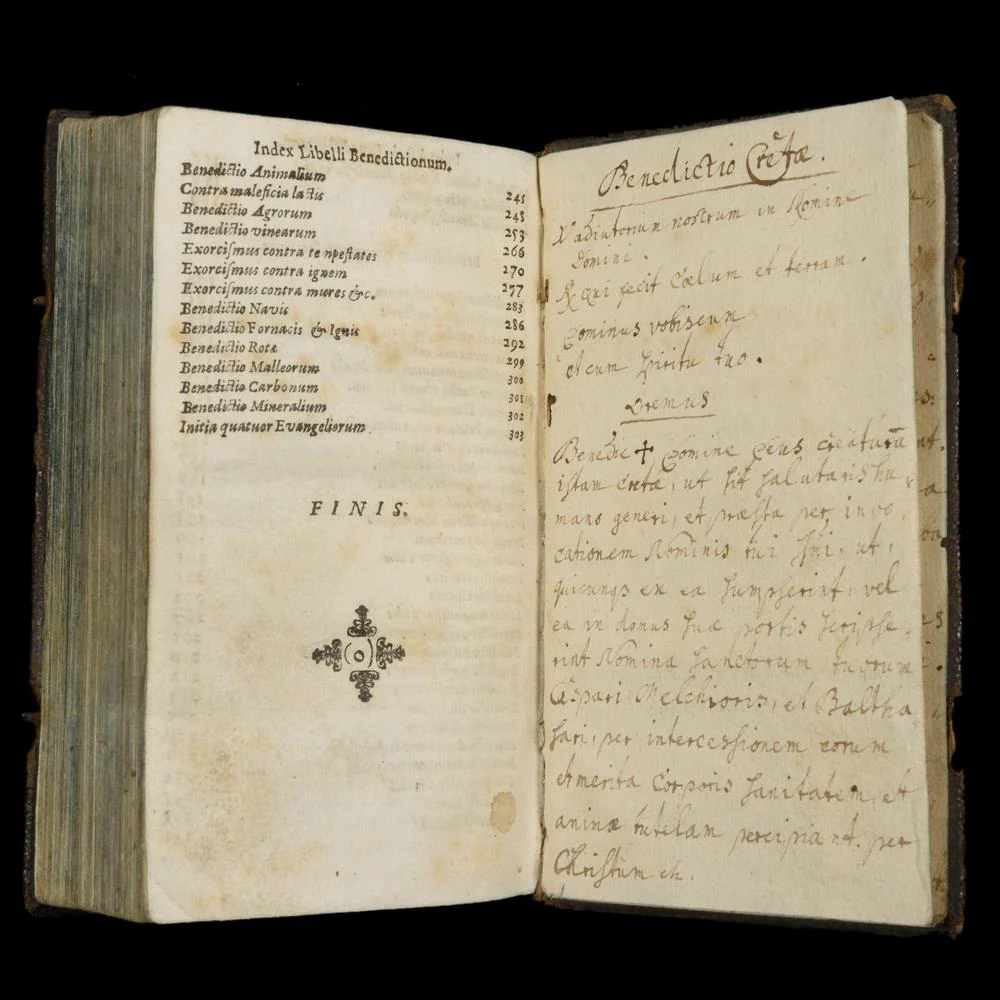 Index Libelli Benedictionum.
Benedictio Animalium
Contra maleficia lactis 245
Benedictio Agrorum 248
Benedictio vinearum 253
Exorciſmus contra tenpeſtates 266
Exorciſmus contra ignem 270
Exorciſmus contra mures &c. 277
Benedictio Navis 283
Benedictio Fornacis & Ignis 286
Benedictio Rotæ 292
Benedictio Malleorum 299
Benedictio Carbonum 300
Benedictio Mineralium 301
Initia quatuor Evangeliorum 302
303
FINIS.
Benedictio Cretæ.
V adiutorium nostrum in Nomine
Domini.
R. qui fecit Cœlum et terram.
Dominus vobiscum
et cum ſpiritu tuo.
Oremus
Benedic ✝ Domine Deus creaturā
iſtam cretæ, ut ſit ſalutaris hu
mano generi, et præſta per invo
cationem Nominis tui ſſmi, ut,
quicunqꝫ ex ea ſumpſerint, vel
ea in domus ſuæ portis ſcripſe
rint Nomina ſanctorum tuorum
Caspari Melchioris, et Baltha
ſari, per interceſsionem eorum
et merita Corporis ſanitatem, et
animæ tutelam percipiant. per
Chriſtum